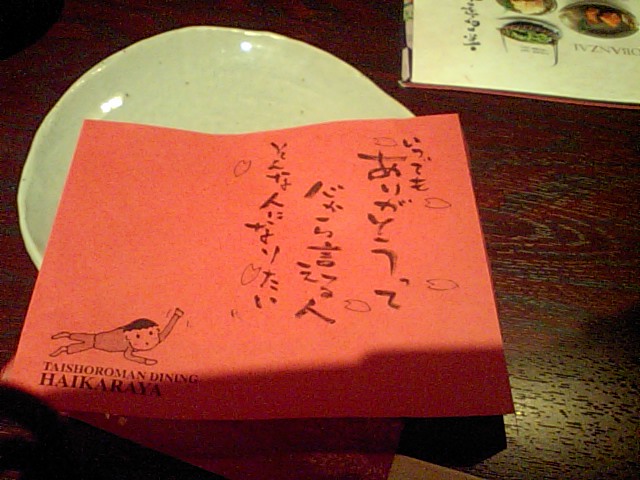 いつでも
ありがとうって
心から言える人
そんな人になりたい
TAISHOROMAN DINING
HAIKARAYA
OBANZAI